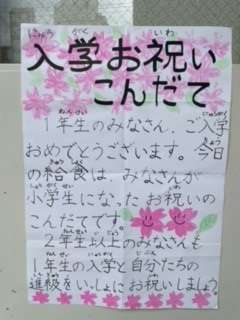 入学お祝い
こんだて
1年生のみなさん、ご入学
おめでとうございます。今日
の給食は、みなさんが
小学生になったお祝いの
こんだてです。
2年生以上のみなさんも
1年生の入学と自分たちの
進級をいっしょにお祝いしましょう。